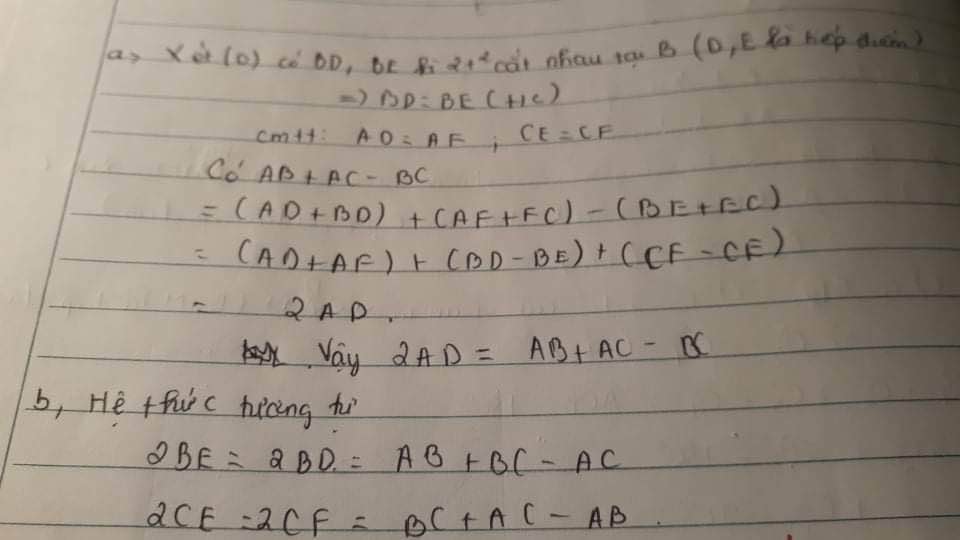 a, Xét (O) có BD, BE là 2 t² cắt nhau tại B (D, E là tiếp điểm)
=> BD = BE (t/c)
cmtt: AD = AF ; CE = CF
Có AB + AC - BC
= (AD + BD) + (AF + FC) - (BE + EC)
= (AD + AF) + (BD - BE) + (CF - CE)
= 2AD.
Vậy 2AD = AB + AC - BC
b, Hệ thức tương tự
2BE = 2BD = AB + BC - AC
2CE = 2CF = BC + AC - AB.